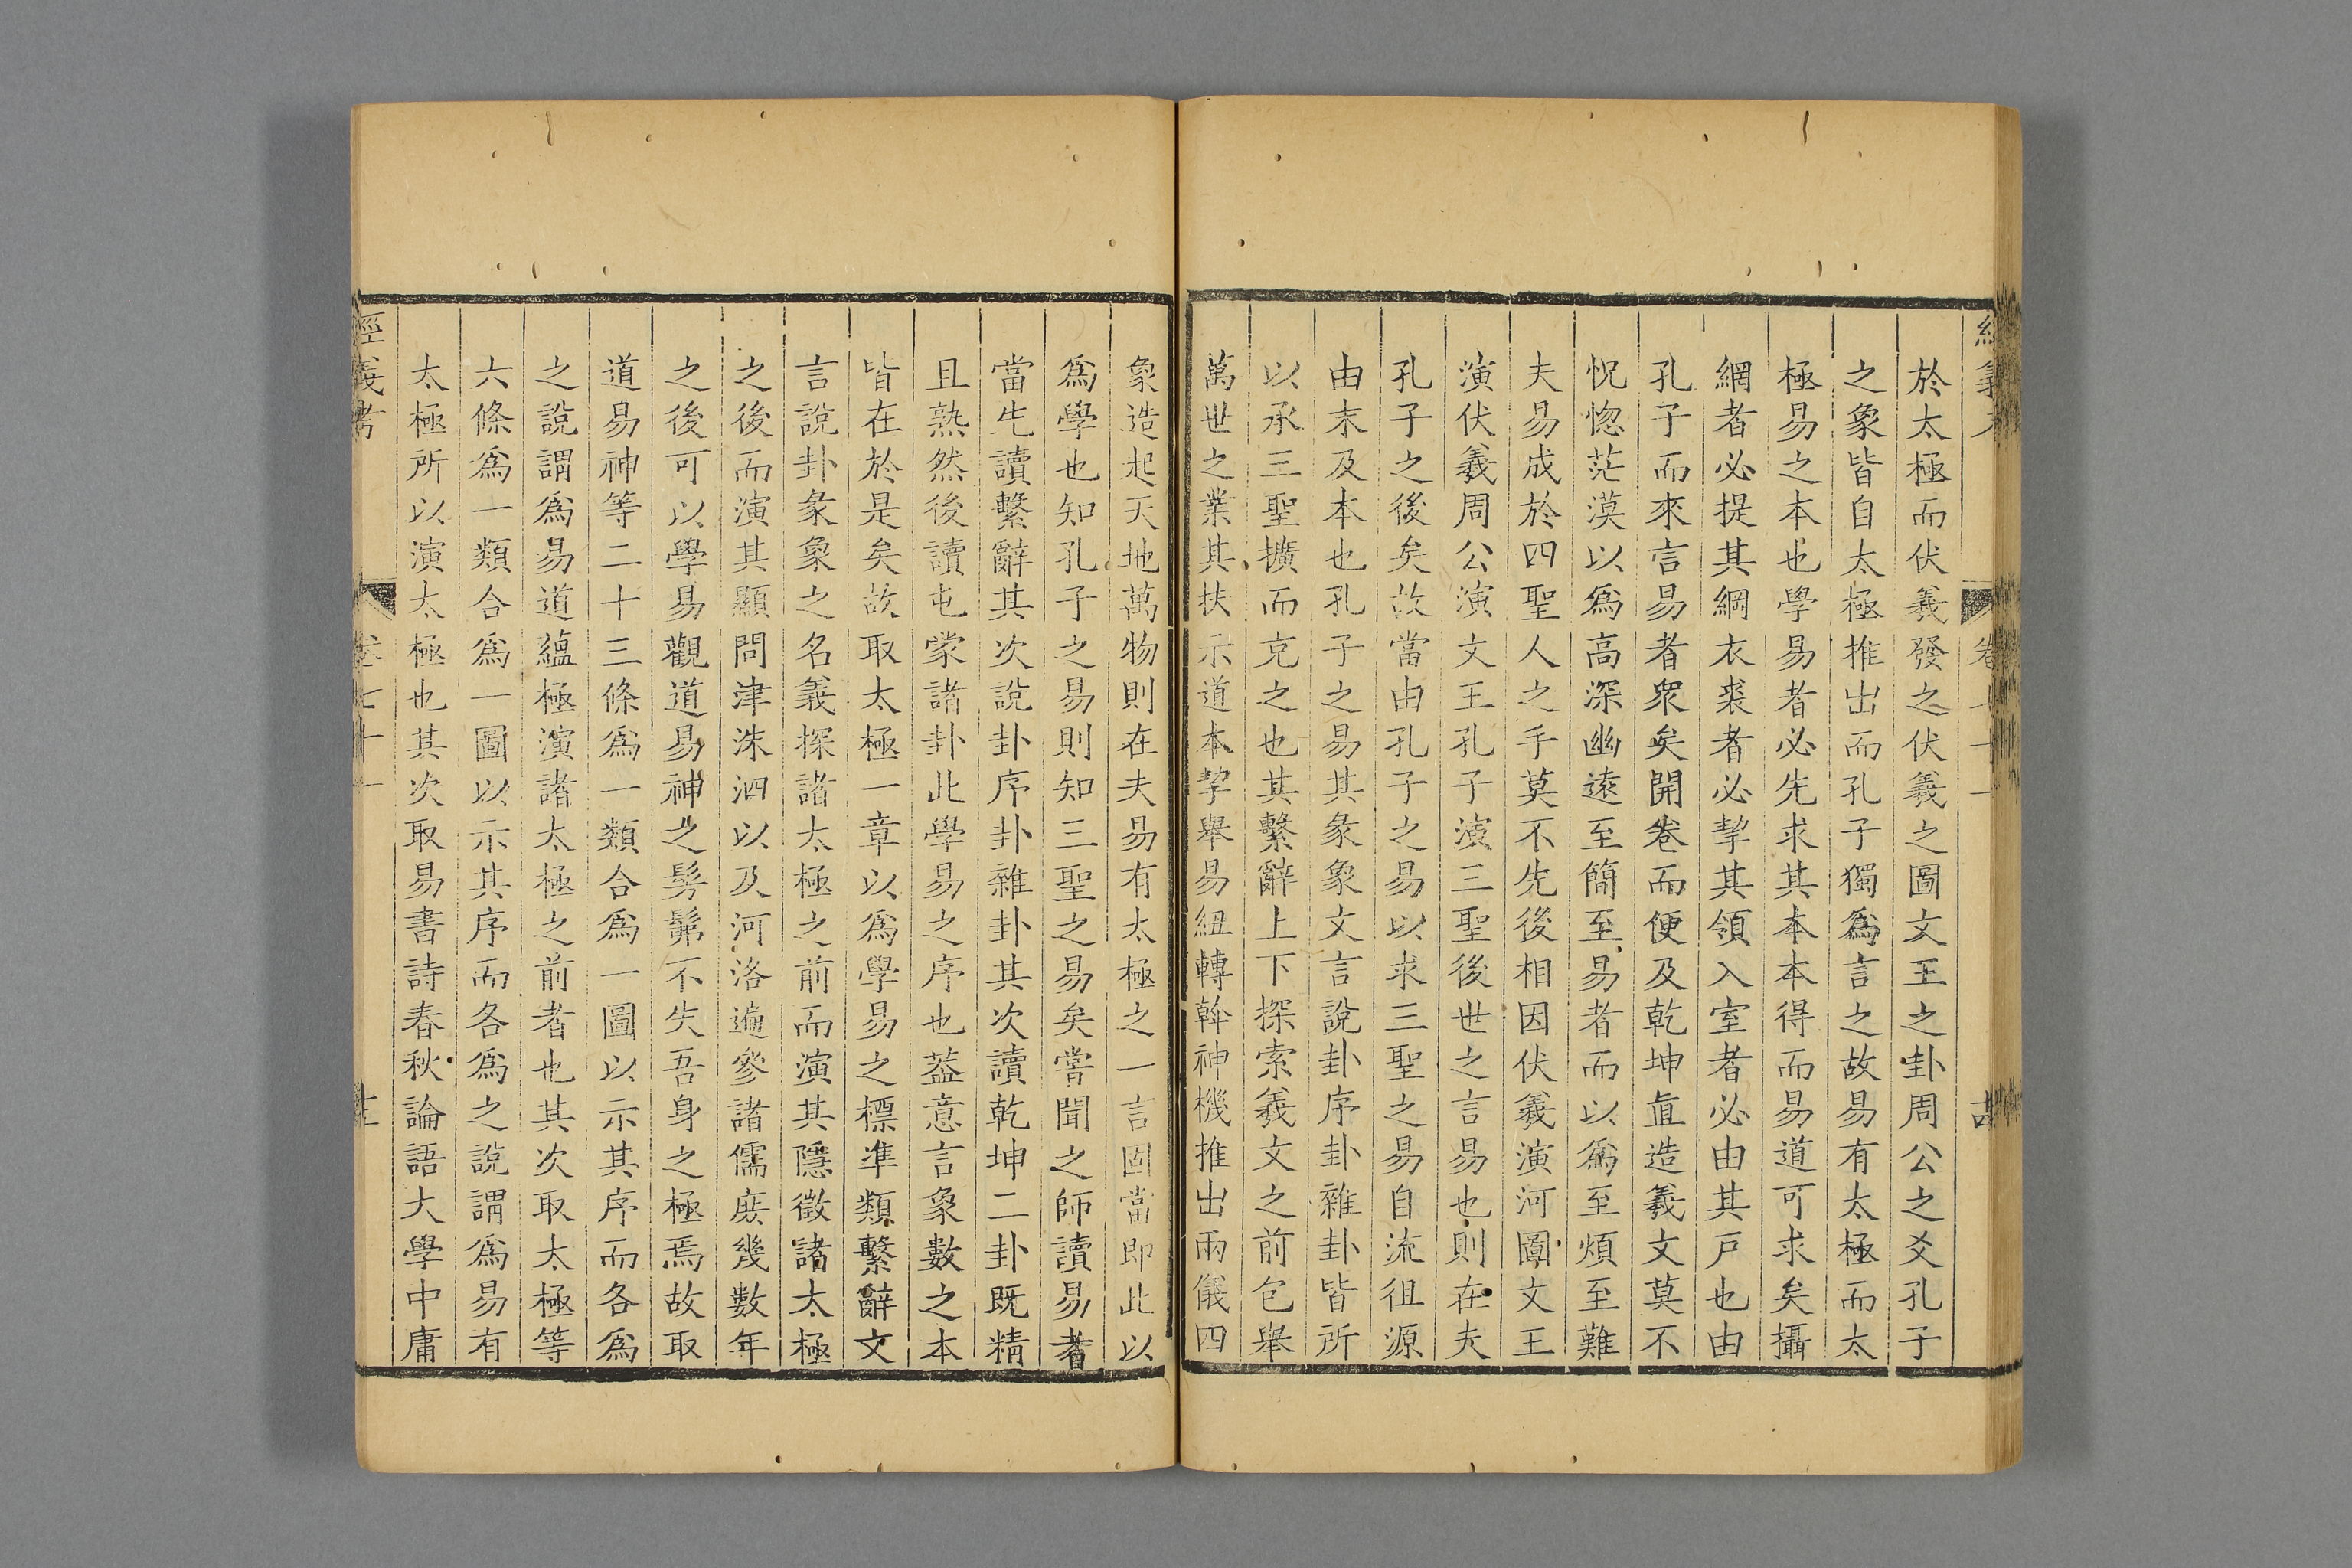 於太極而伏羲發之伏羲之圖文王之卦周公之爻孔子
之象皆自太極推出而孔子獨爲言之故易有太極而太
極易之本也學易者必先求其本本得而易道可求矣攝
網者必提其綱衣裘者必挈其領入室者必由其戸也由
孔子而來言易者衆矣開卷而便及乾坤直造羲文莫不
怳惚茫漠以爲高深幽遠至簡至易者而以爲至煩至難
夫易成於四聖人之手莫不先後相因伏羲演河圖文王
演伏羲周公演文王孔子演三聖後世之言易也則在夫
孔子之後矣故當由孔子之易以求三聖之易自流徂源
由末及本也孔子之易其彖象文言說卦序卦雜卦皆所
以承三聖擴而克之也其繫辭上下探索羲文之前包舉
萬世之業其扶示道本挈舉易紐轉斡神機推出兩儀四
象造起天地萬物則在夫易有太極之一言固當即此以
爲學也知孔子之易則知三聖之易矣嘗聞之師讀易者
當先讀繫辭其次說卦序卦雜卦其次讀乾坤二卦既精
且熟然後讀屯蒙諸卦此學易之序也葢意言象數之本
皆在於是矣故取太極一章以爲學易之標準類繫辭文
言說卦彖象之名義探諸太極之前而演其隱徵諸太極
之後而演其顯問津洙泗以及河洛遍參諸儒庶幾數年
之後可以學易觀道易神之髣髴不失吾身之極焉故取
道易神等二十三條爲一類合爲一圖以示其序而各爲
之說謂爲易道蘊極演諸太極之前者也其次取太極等
六條爲一類合爲一圖以示其序而各爲之說謂爲易有
太極所以演太極也其次取易書詩春秋論語大學中庸
經義考
卷七十一